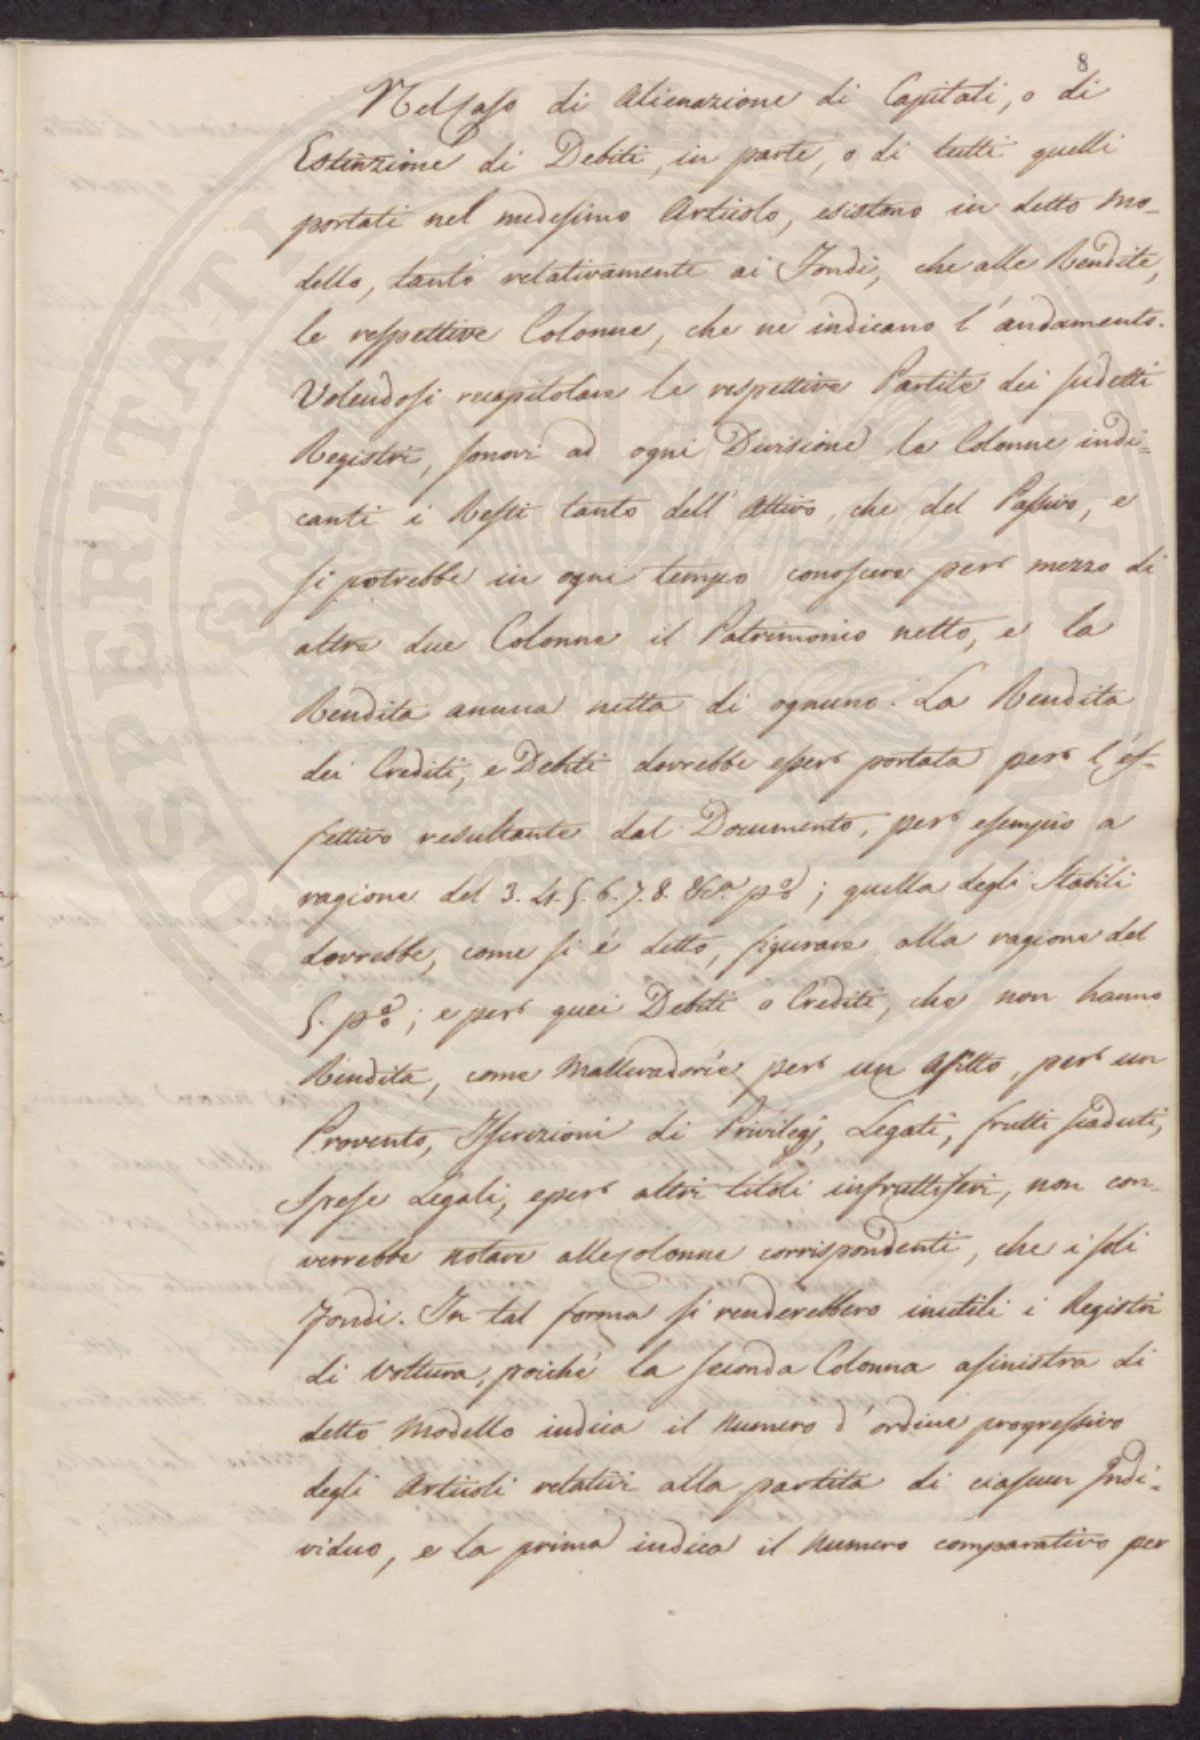 8
Nel Caso di Alienazione di Capitali, o di
Estinzione di Debiti, in parte, o di tutti quelli
portati nel medesimo Articolo, esistono in detto Mo-
dello, tanto relativamente ai Fondi, che alle Rendite,
le respettive Colonne, che ne indicano l'andamento.
Volendosi recapitolare le respettive Partite dei sudetti
Registri, sonovi ad ogni Divisione le Colonne indi-
canti i Resti tanto dell'Attivo, che del Passivo, e
si potrebbe in ogni tempo conoscere per mezzo di
altre due Colonne il Patrimonio netto, e la
Rendita annua netta di ognuno. La Rendita
dei Crediti, e Debiti dovrebbe esser portata per l'ef-
fettivo resultante dal Documento, per esempio a
ragione del 3. 4. 5. 6. 7. 8. &c.ª p%; quella degli Stabili
dovrebbe, come si è detto, figurare alla ragione del
5. p%; e per quei Debiti o Crediti, che non hanno
Rendita, come Mallevadorie per un Afitto, per un
Provento, Iscrizioni di Privilegj, Legati, frutti scaduti,
Spese Legali, e per altri titoli infruttiferi, non con-
verrebbe notare alle colonne corrispondenti, che i soli
Fondi. In tal forma si renderebbero inutili i Registri
di Voltura, poichè la seconda Colonna a sinistra di
detto Modello indica il Numero d'ordine progressivo
degli Articoli relativi alla partita di ciascun Indi-
viduo, e la prima indica il Numero comparativo per
PROSPERITATI PUBLICAE